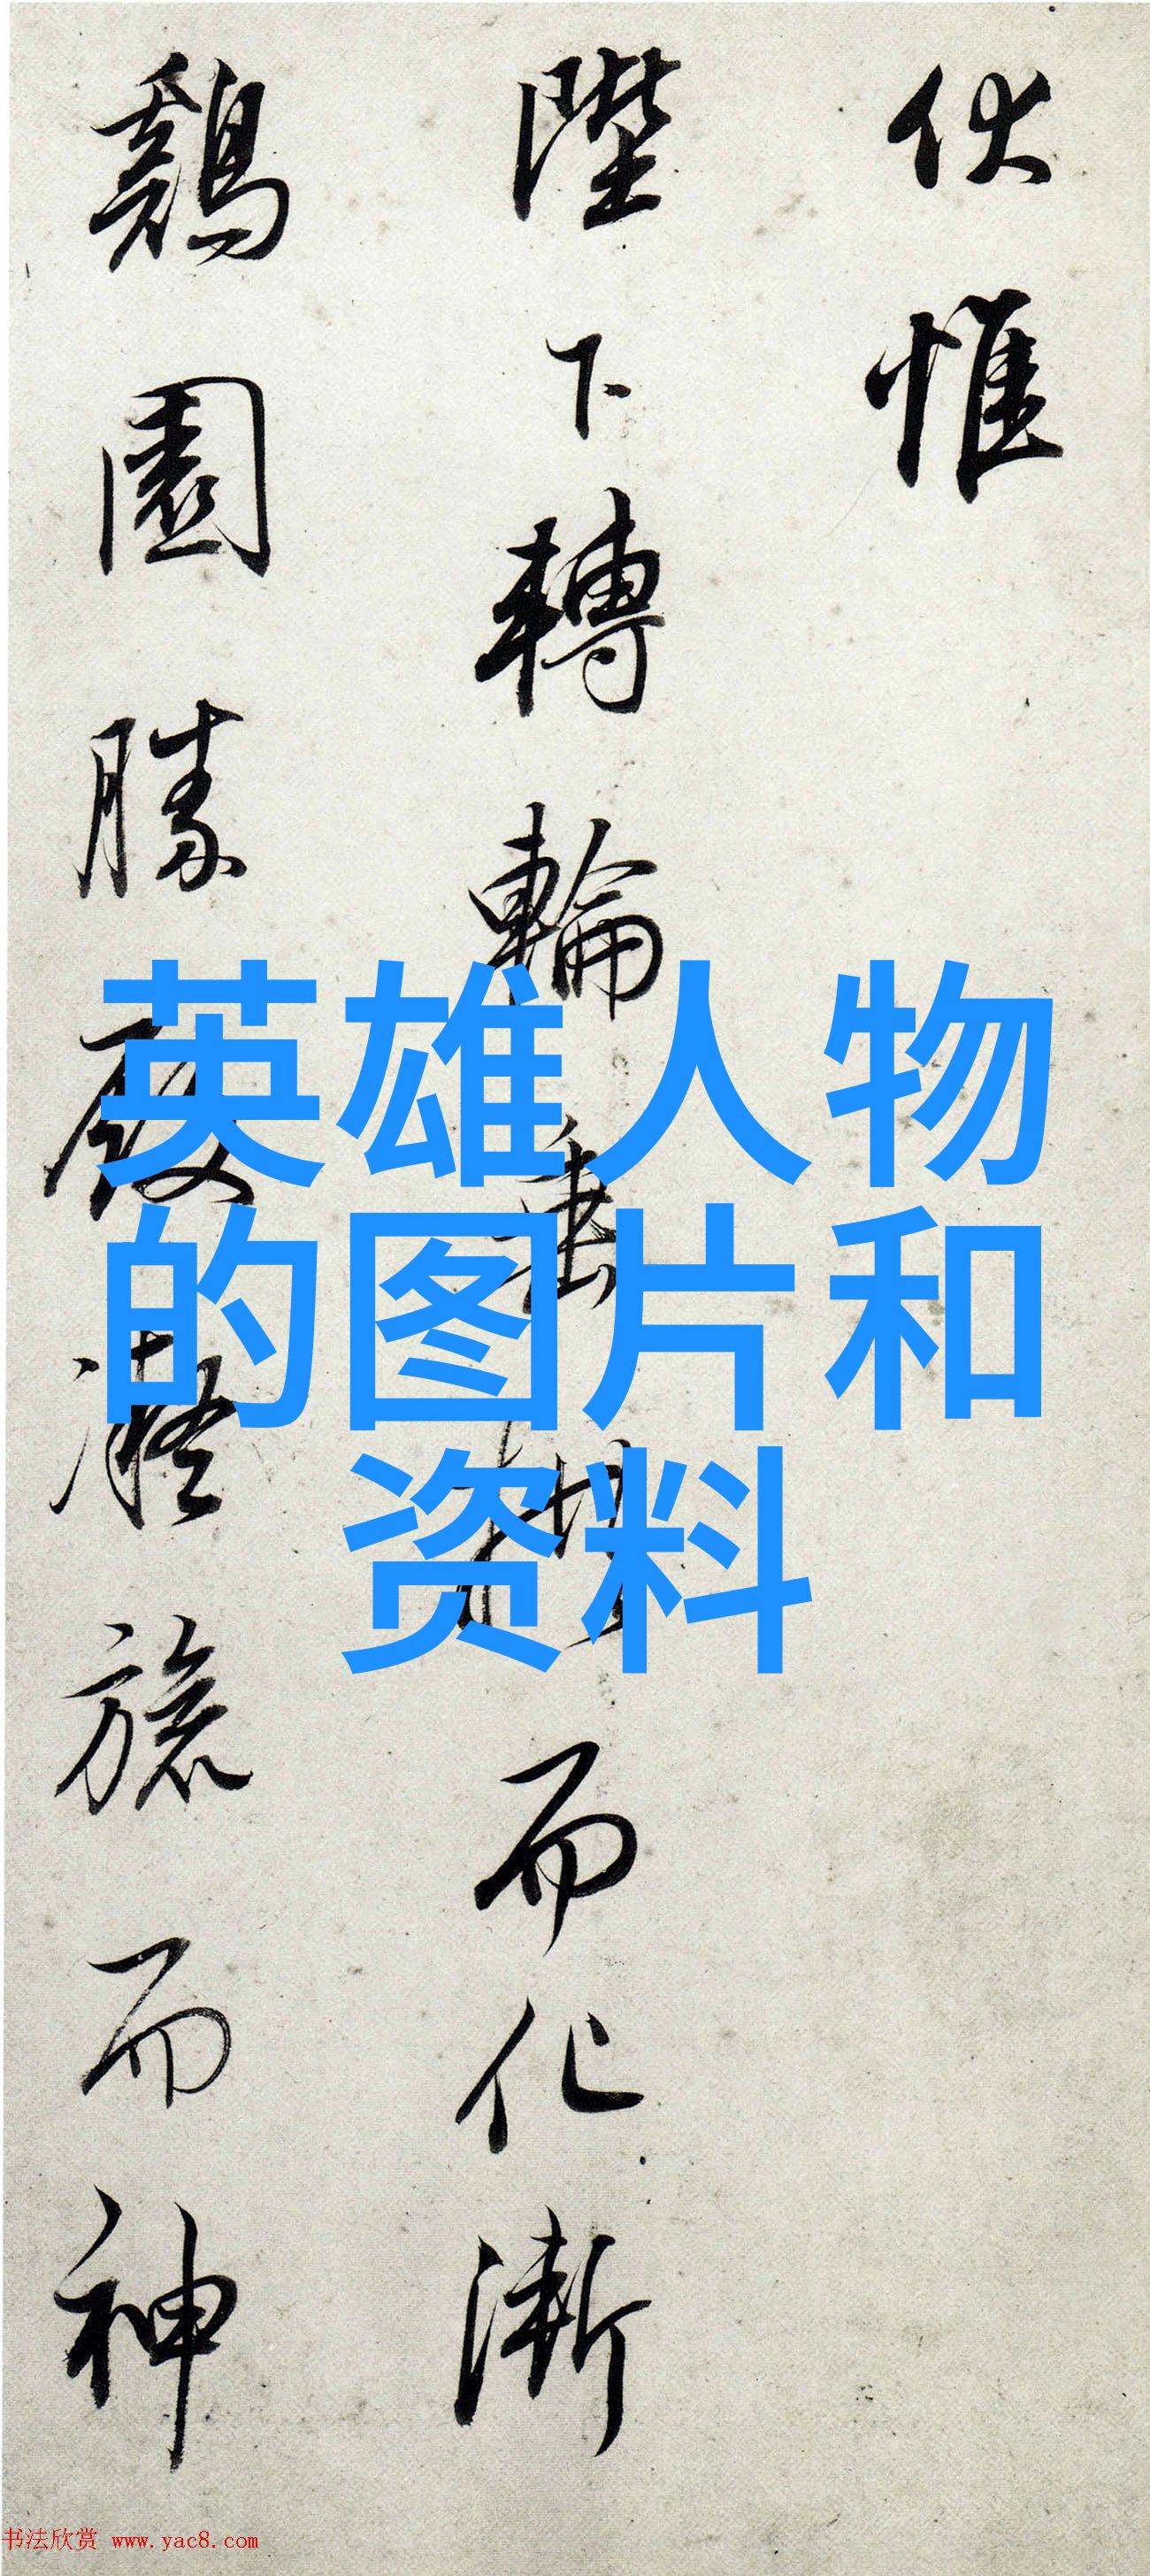 伏惟
陛下轉輪垂拱而化漸
鷄園勝殿凝旒而神
英雄人物
的图片和
资料
书法欣赏 www.yac8.com